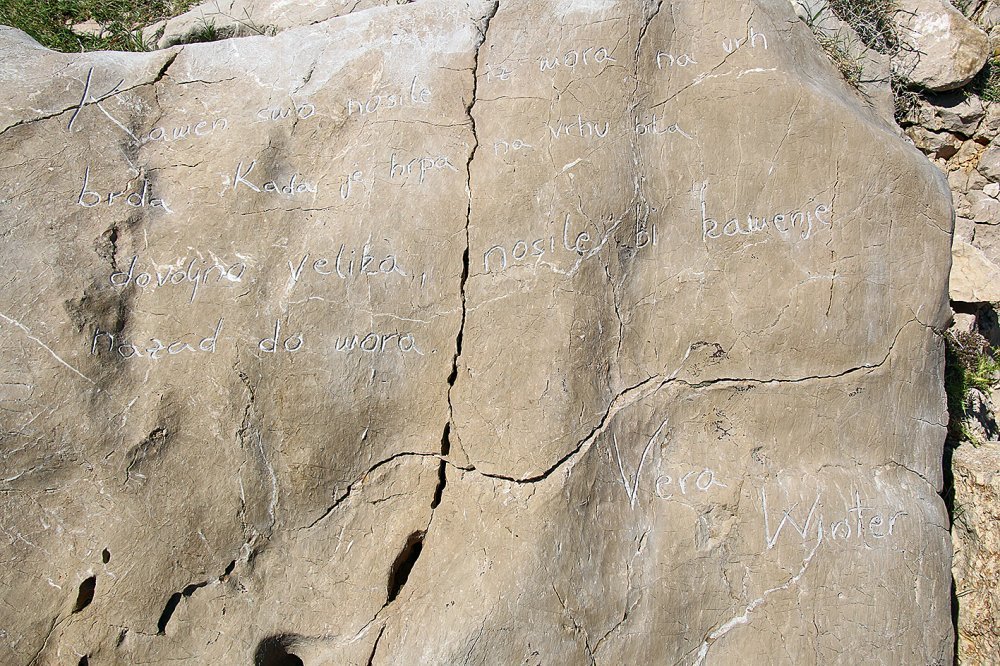 Kamen smo nosile iz mora na vrh
brda. Kada je hrpa na vrhu bila
dovoljno velika, nosile bi kamenje
nazad do mora.
Vera
Winter